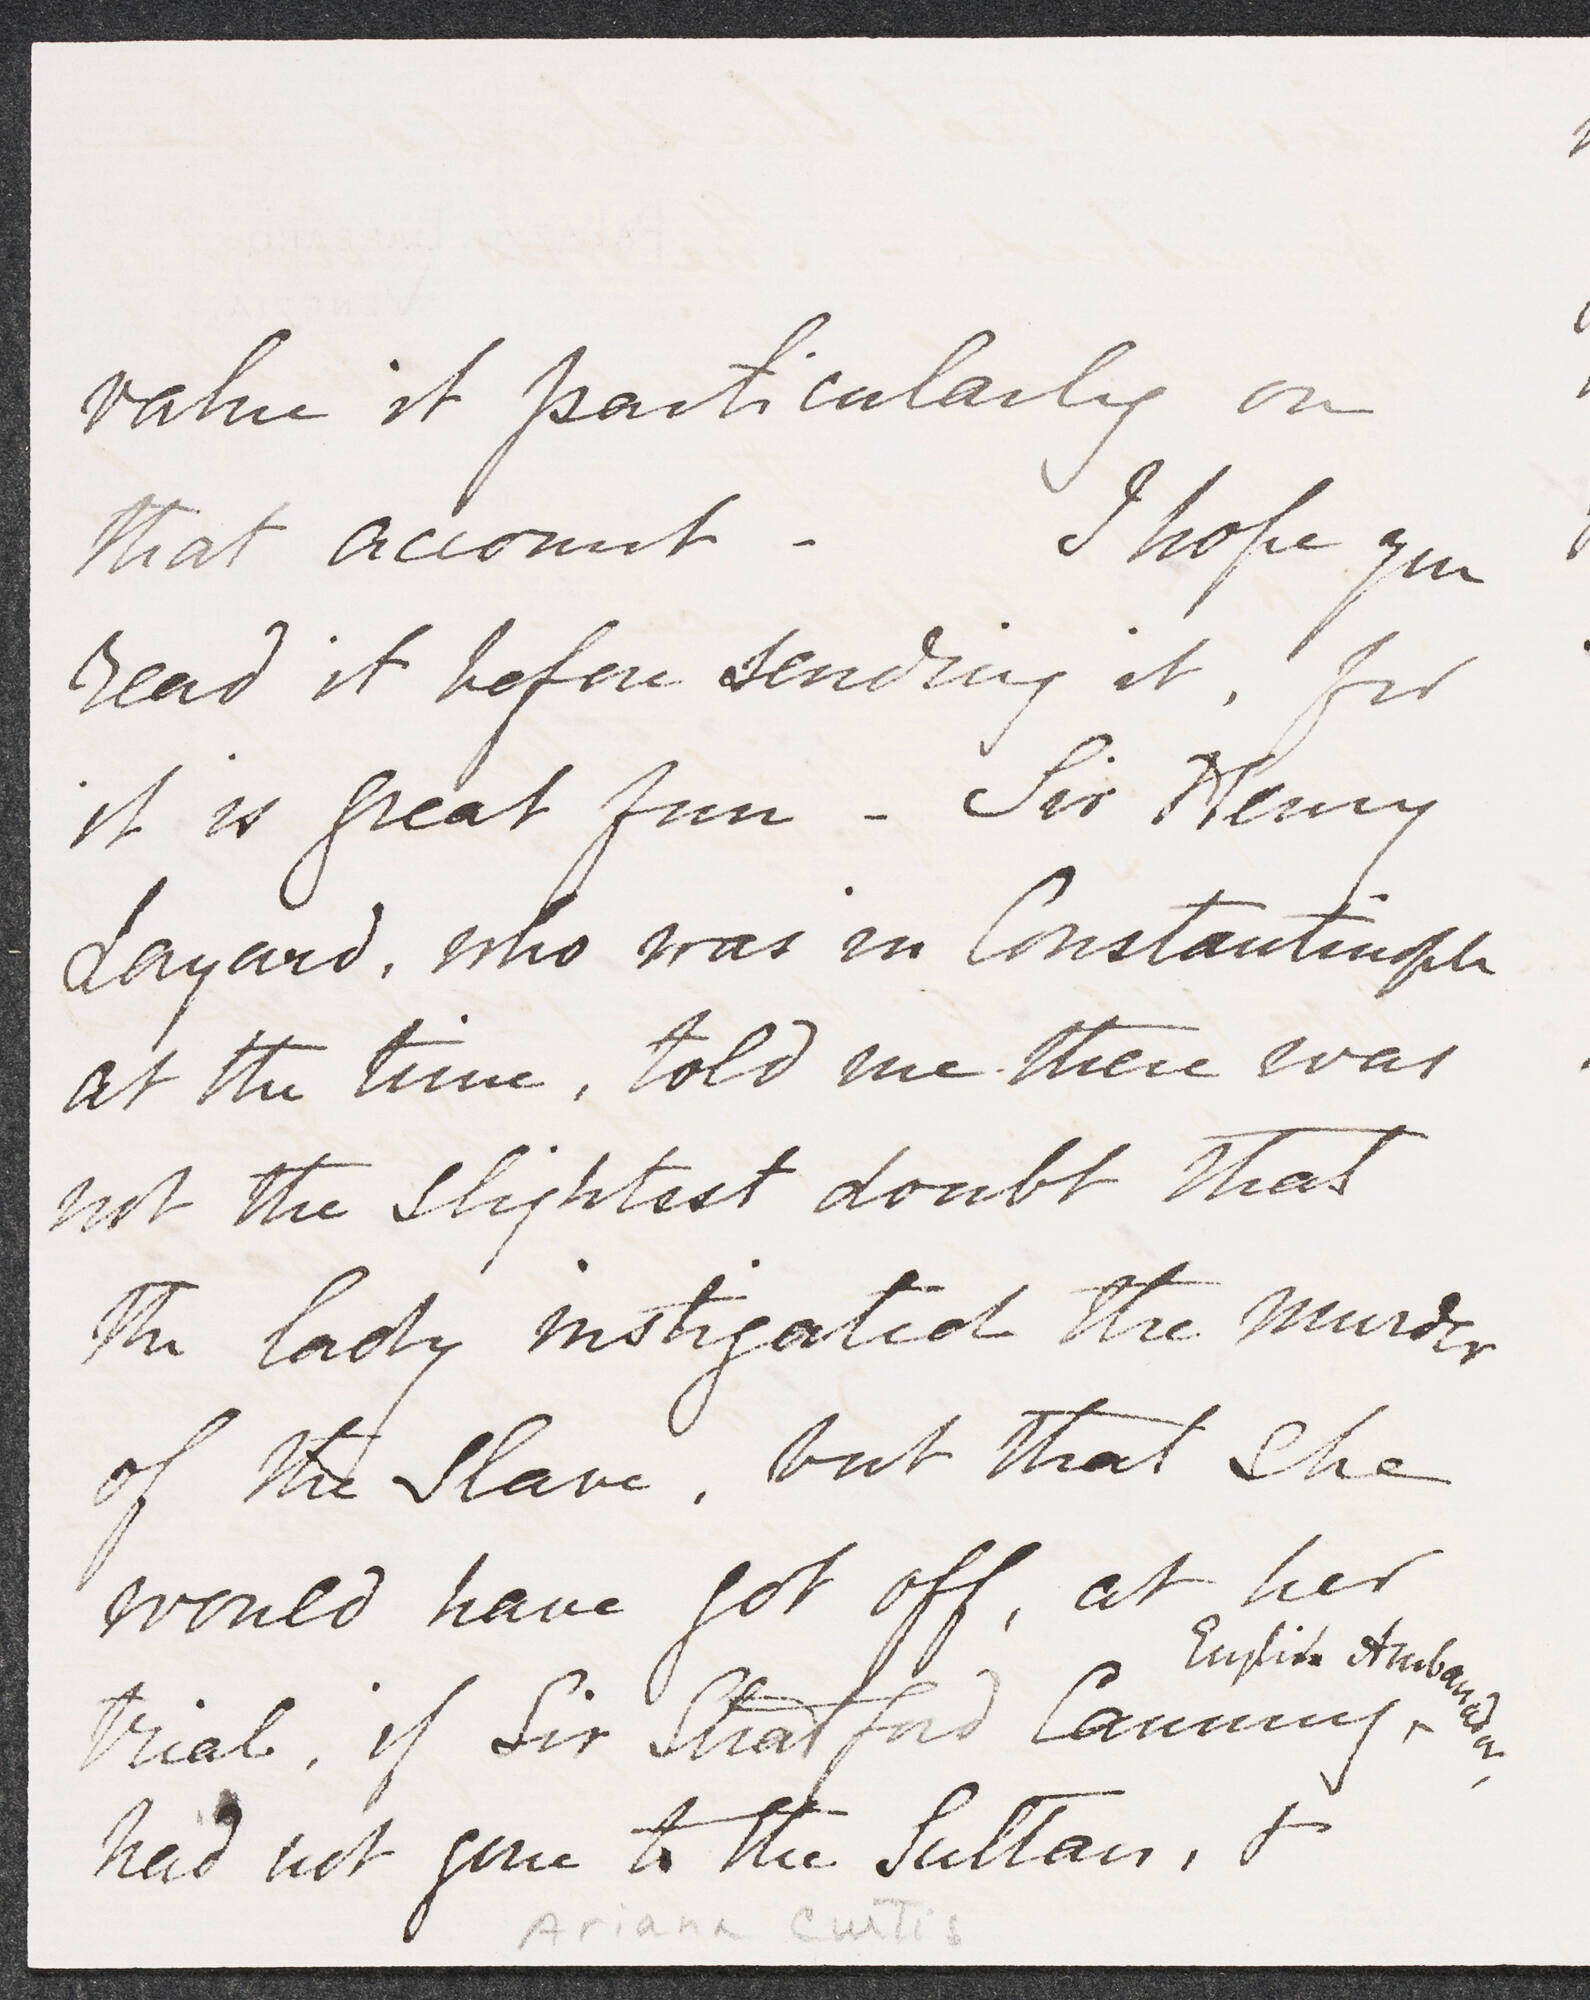 value it particularly on
that account - I hope you
read it before sending it, for
it is great fun - Sir Henry
Layard, who was in Constantinople
at the time, told me there was
not the slightest doubt that
the lady instigated the murder
of the slave, but that she
would have got off, at her
English Ambassador,
trial, if Sir Stratford Canning, +
had not gone to the Sultan, &
Ariana Curtis